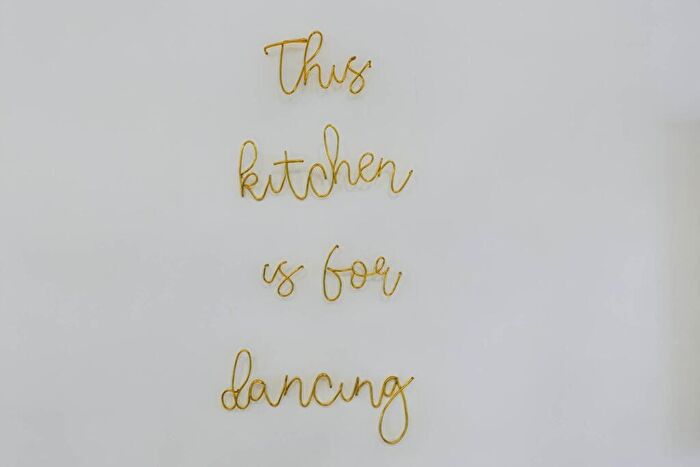 This
kitchen
is for
dancing